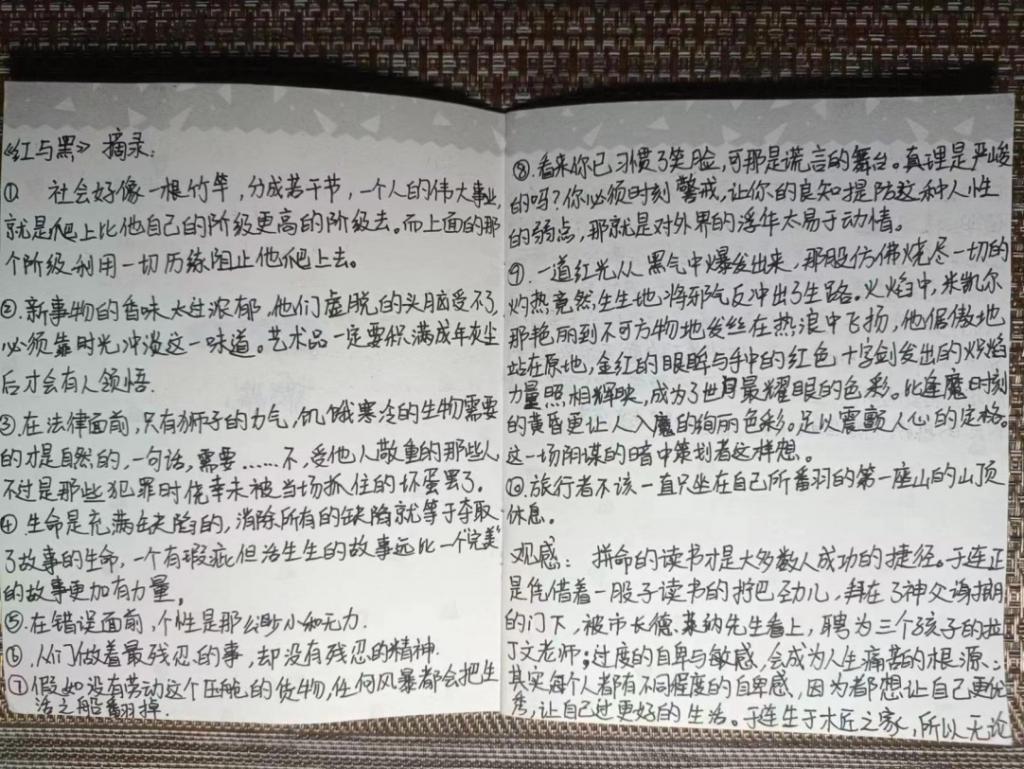 《红与黑》摘录:
① 社会好像一根竹竿,分成若干节,一个人的伟大事业,
就是爬上比他自己的阶级更高的阶级去。而上面的那
个阶级利用一切历练阻止他爬上去。
②.新事物的香味太过浓郁,他们虚脱的头脑受不了,
必须靠时光冲淡这一味道。艺术品一定要积满成年灰尘
后才会有人领悟.
③.在法律面前,只有狮子的力气,饥饿寒冷的生物需要
的才是自然的,一句话,需要……不,受他人敬重的那些人
不过是那些犯罪时侥幸未被当场抓住的坏蛋罢了.
④.生命是充满缺陷的,消除所有的缺陷就等于夺取
了故事的生命,一个有瑕疵但活生生的故事远比一个"完美"
的故事更加有力量。
⑤.在错误面前,个性是那么渺小和无力.
⑥.人们做着最残忍的事,却没有残忍的精神.
⑦假如没有劳动这个压舱的货物,任何风暴都会把生
活之船翻掉.
⑧.看来你已习惯了笑脸,可那是谎言的舞台。真理是严峻
的吗?你必须时刻警戒,让你的良知提防这种人性
的弱点,那就是对外界的浮华太易于动情。
⑨.一道红光从黑气中爆发出来,那股仿佛烧尽一切的
灼热竟然生生地将邪气反冲出了生路。火焰中,米凯尔
那艳丽到不可方物地发丝在热浪中飞扬,他倨傲地
站在原地,金红的眼眸与手中的红色十字剑发出的炽焰
力量照相辉映,成为了世最耀眼的色彩。比逢魔时刻
的黄昏更让人入魔的绚丽色彩。足以震颤人心的定格。
这一场阴谋的暗中策划者这样想。
⑩.旅行者不该一直只坐在自己所番羽的第一座山的山顶
休息.
观感: 拼命的读书才是大多数人成功的捷径。于连正
是凭借着一股子读书的拧巴劲儿,拜在了神父海
的门下,被市长德.莱纳先生看上,聘为三个孩子的拉
丁文老师;过度的自卑与敏感,会成为人生痛苦的根源..
其实每个人都有不同程度的自卑感,因为都想让自己更优
秀,让自己过更好的生活。于连生于木匠之家,所以无论